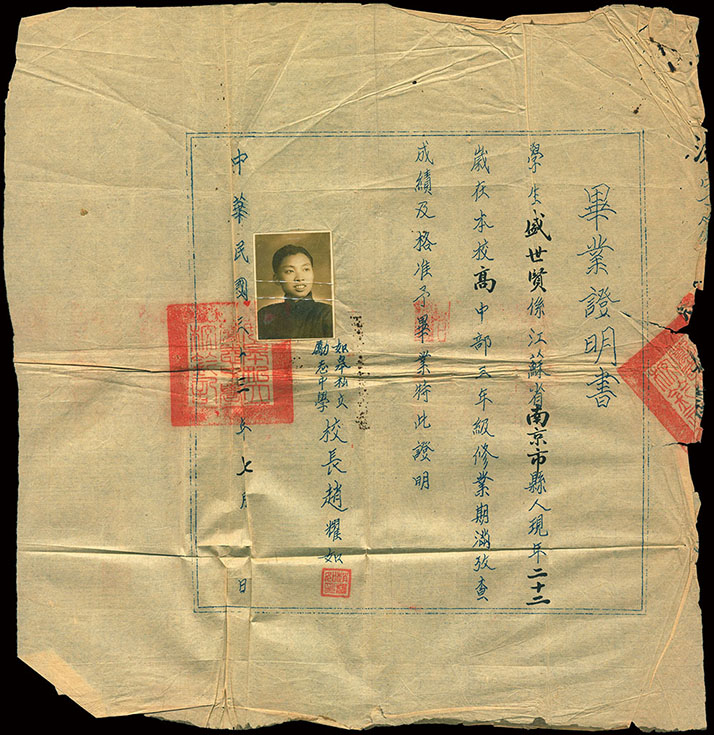 畢業證明書
學生盛世賢係江蘇省南京市縣人現年二十二
歲在本校高中部三年級修業期滿攷查
成績及格准予畢業特此證明
如皋私立
勵志中學
校長趙耀如
中華民國三十三年七月 日